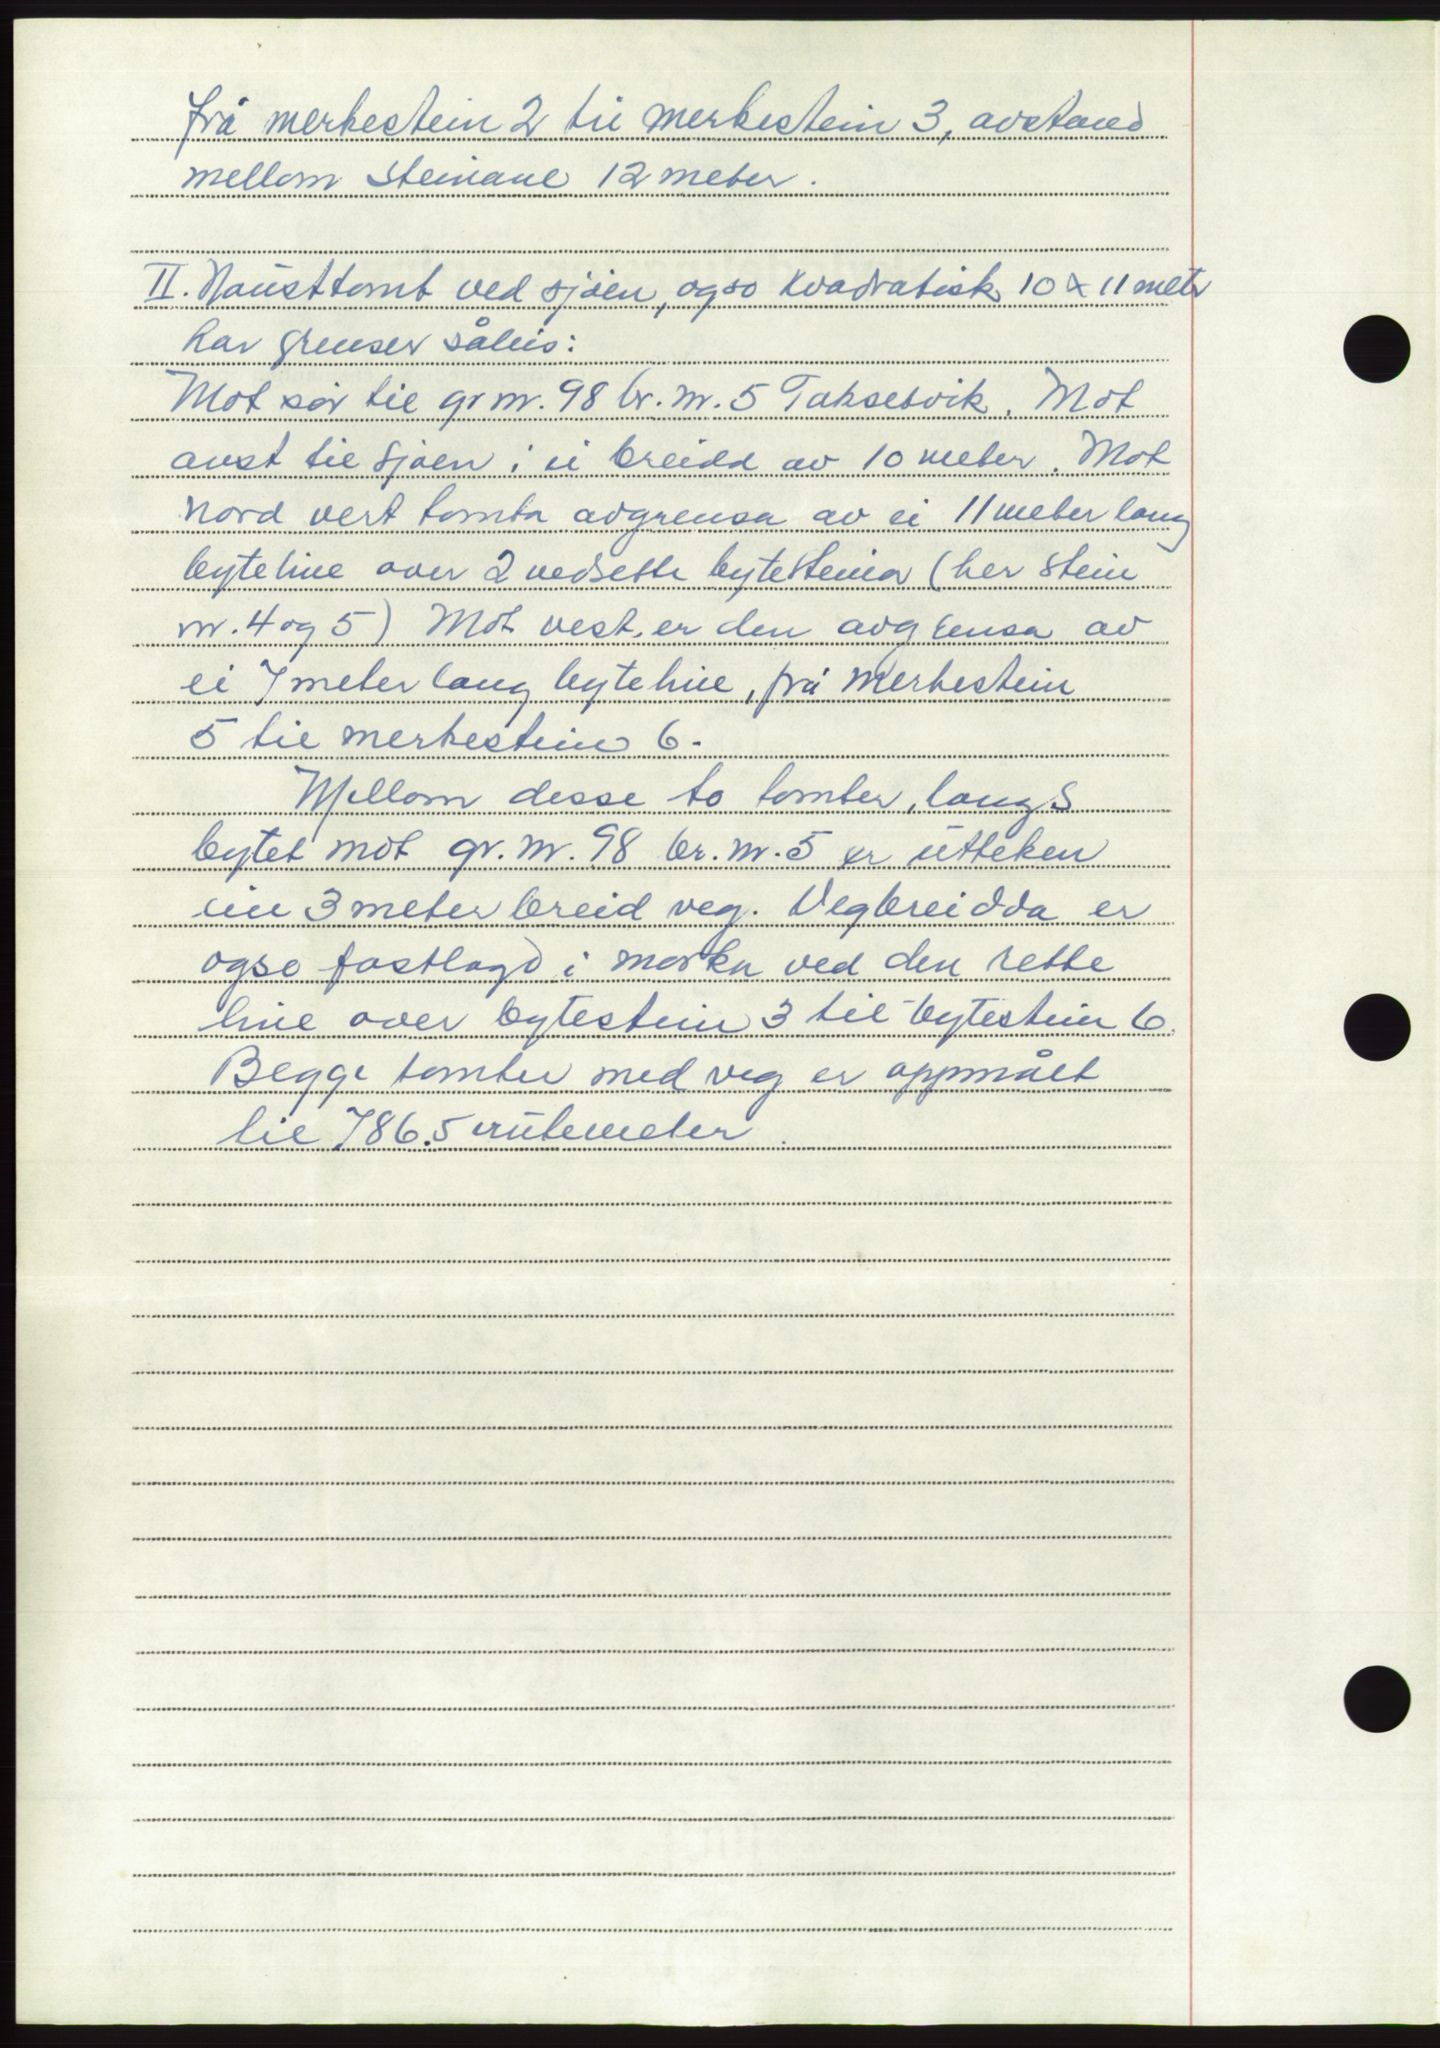 frå merkestein 2 til merkestein 3, avstand
mellom steinane 12 meter.
II. Nausttomt ved sjøen, ogso kvadratisk 10 x 11 meter
har grenser såleis:
Mot sør til gr nr. 98 br. nr. 5 Taksetvik. Mot
aust til sjøen i ei breidd av 10 meter. Mot
nord vert tomta avgrensa av ei 11 meter lang
byteline over 2 nedsette bytesteinar (her stein
nr. 4 og 5) Mot vest er den avgrensa av
ei 7 meter lang byteline, frå merkestein
5 til merkestein 6.
Mellom desse to tomter, langs
bytet mot gr. nr. 98 br. nr. 5 er utteken
ein 3 meter breid veg. Vegbreidda er
ogso fastlagd i marka ved den rette
line over bytestein 3 til bytestein 6.
Begge tomter med veg er oppmålt
til 786.5 rutemeter.